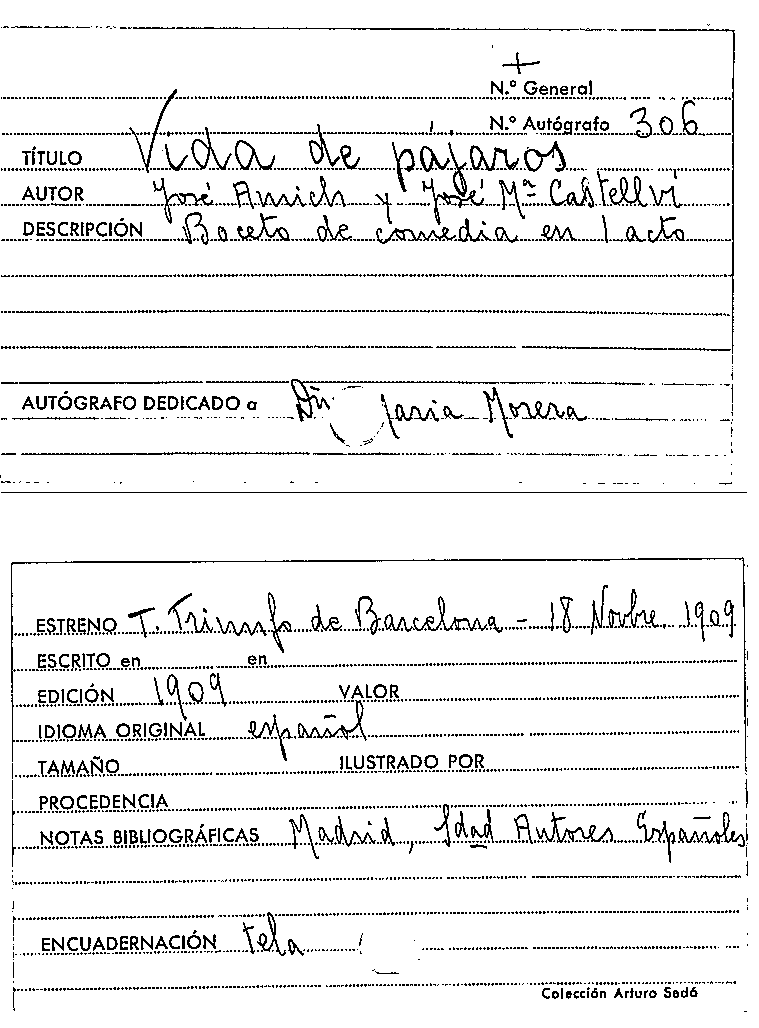 +
N.º General
N.º Autógrafo 306
TÍTULO Vida de pájaros
AUTOR José Amich y José Mª Castellví
DESCRIPCIÓN Boceto de comedia en 1 acto
AUTÓGRAFO DEDICADO a Dñ aria Morera
ESTRENO T. Triunfo de Barcelona - 18 Novbre. 1909
ESCRITO en en
EDICIÓN 1909 VALOR
IDIOMA ORIGINAL español
TAMAÑO ILUSTRADO POR
PROCEDENCIA
NOTAS BIBLIOGRÁFICAS Madrid, Sdad Autores Españoles
ENCUADERNACIÓN tela
Colección Arturo Sedó